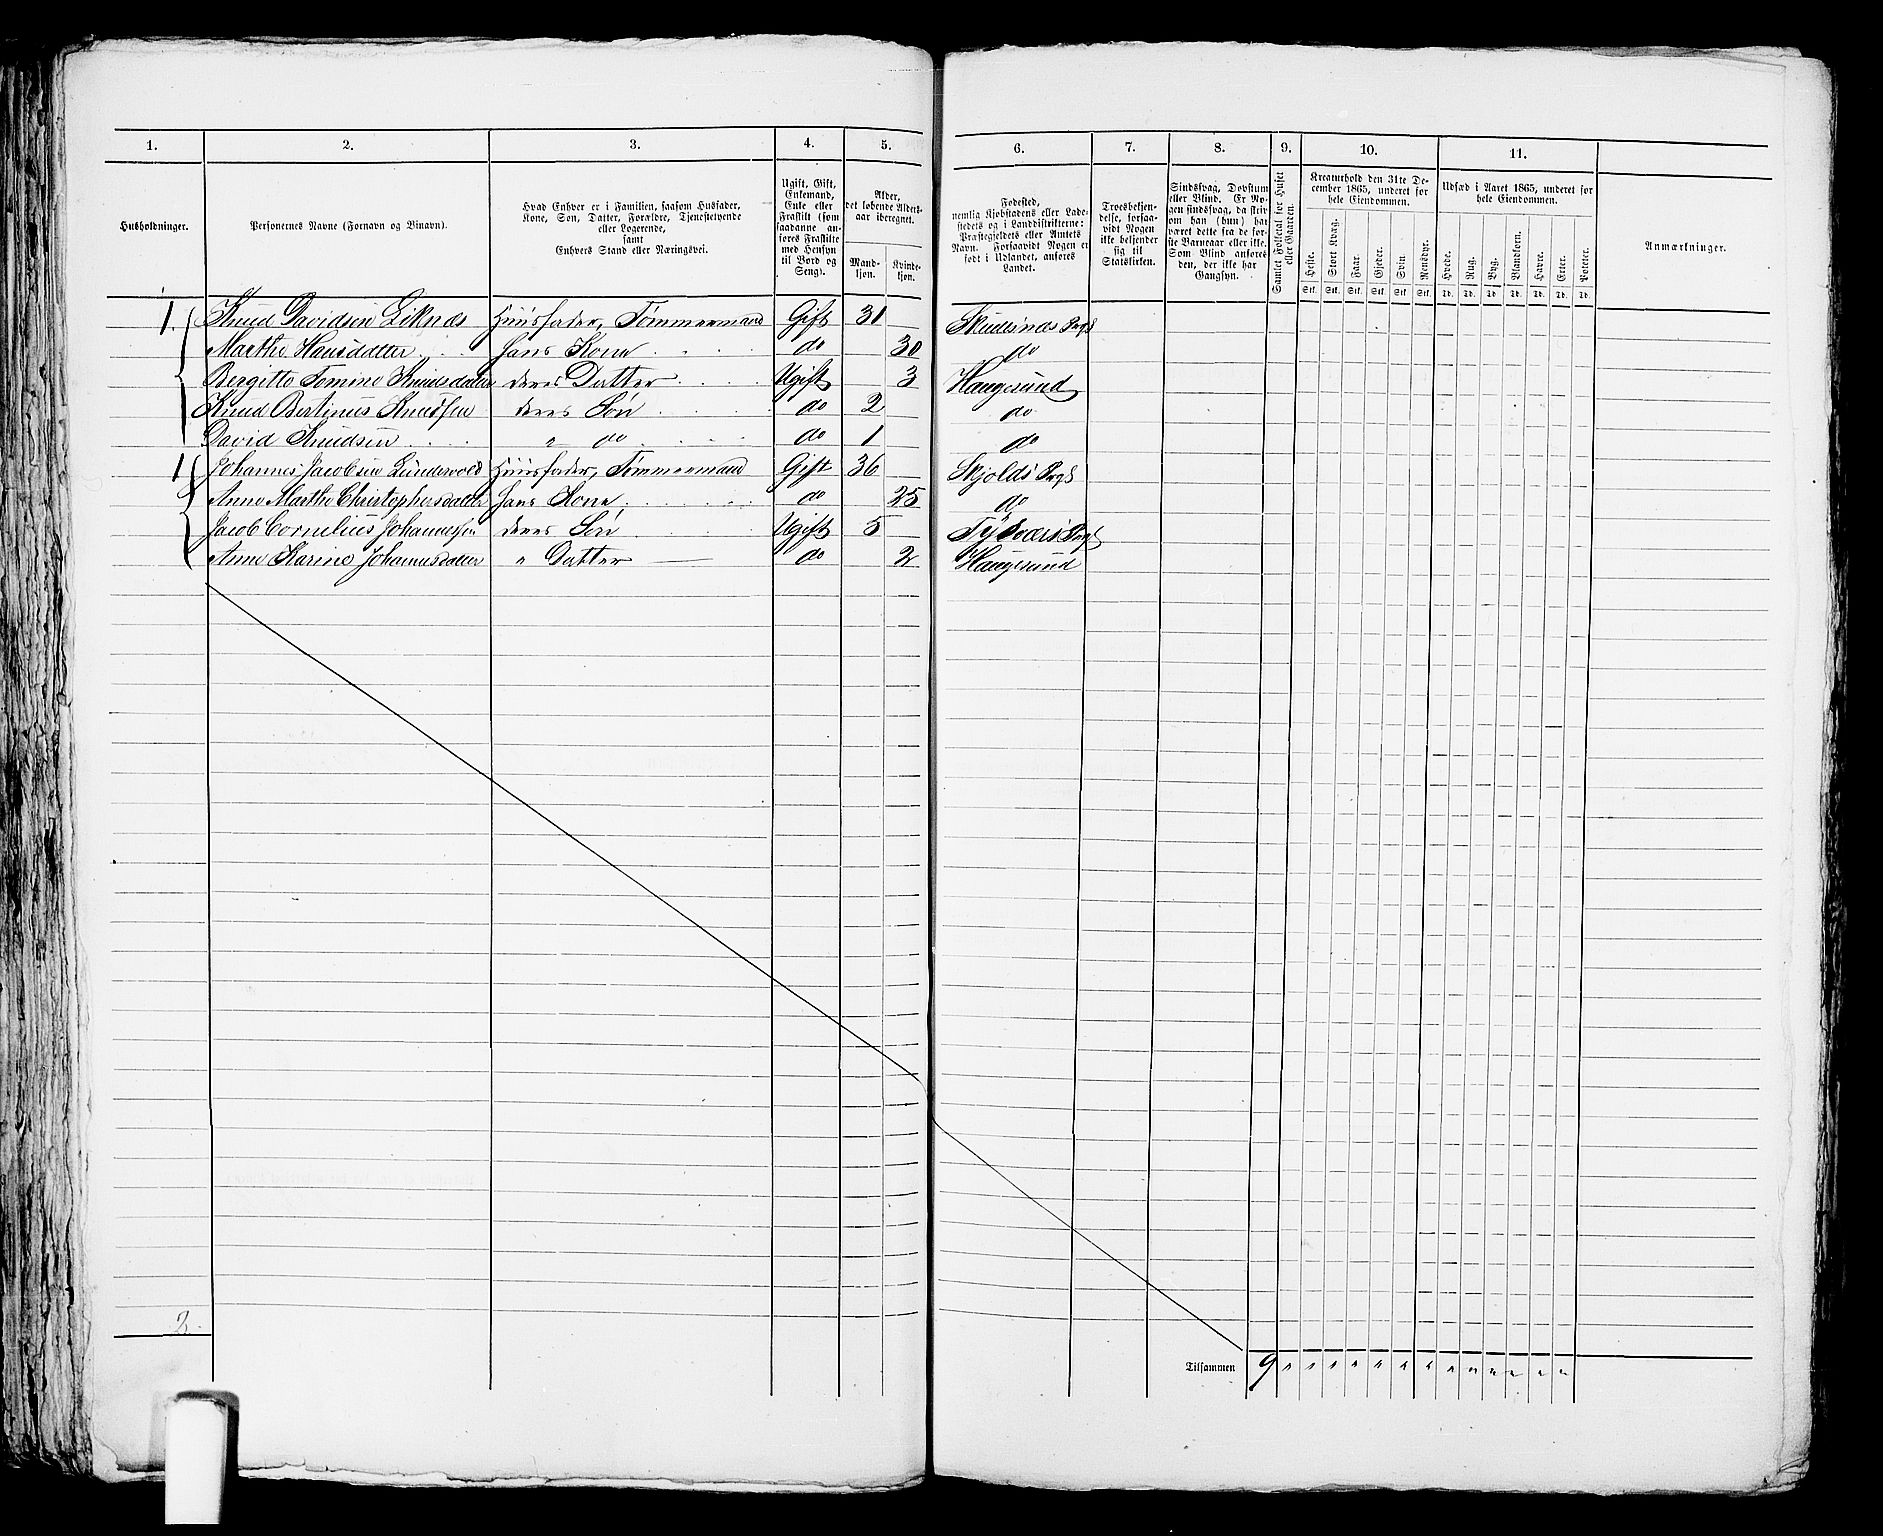 1. 2. 3. 4. 5. 6. 7. 8. 9. 10. 11.
Husholdninger.
Personernes Navne (Fornavn og Binavn).
Hvad Enhver er i Familien, saasom Husfader,
Kone, Søn, Datter, Forældre, Tjenestetyende
eller Logerende,
samt
Enhvers Stand eller Næringsvei.
Ugift, Gift,
Enkemand,
Enke eller
Fraskilt (som
saadanne an-
føres Fraskilte
med Hensyn
til Bord og
Seng).
Alder,
det løbende Alders-
aar iberegnet.
Mand-
kjøn.
Kvinde-
kjøn.
Fødested,
nemlig Kjøbstadens eller Lade-
stedets og i Landdistrikterne:
Præstegjeldets eller Amtets
Navn. Forsaavidt Nogen er
født i Udlandet, anføres
Landet.
Troesbekjen-
delse, forsaa-
vidt Nogen
ikke bekjender
sig til
Statskirken.
Sindssvag, Døvstum
eller Blind. Er No-
gen sindssvag, da skriv
om han (hun) har
været dette fra de før-
ste Barneaar eller ikke.
Som Blind anføres
den, der ikke har
Gangsyn.
Samlet Folketal for Huset
eller Gaarden.
Kreaturhold den 31te De-
cember 1865, underet for
hele Eiendommen.
Heste. Stort Kvæg. Faar. Gjeder. Svin. Rensdyr.
Stk. Stk. Stk. Stk. Stk. Stk.
Udsæd i Aaret 1865, underet for
hele Eiendommen.
Hvede. Rug. Byg. Blandkorn. Havre. Erter. Poteter.
Td. Td. Td. Td. Td. Td. Td.
Anmærkninger.
1. Knud Davidsen Liknæs Huusfader, Tømmermand Gift 31 Skudesnæs Prgd
Marthe Hansdatter hans Kone do 30 do
Bergitte Tomine Knudsdatter deres Datter Ugift 3 Haugesund
Knud Bertinus Knudsen deres Søn do 2 do
David Knudsen " do do 1 do
1. Johannes Jacobsen Lundevold Huusfader, Tømmermand Gift 36 Skjolds Prgd
Anne Marthe Christophersdatter hans Kone do 25 do
Jacob Cornelius Johannesen deres Søn Ugift 5 Tysværs Prgd
Anne Karine Johannesdatter " Datter do 2 Haugesund
2.
Tilsammen 9 " " " " " " " " " " " "